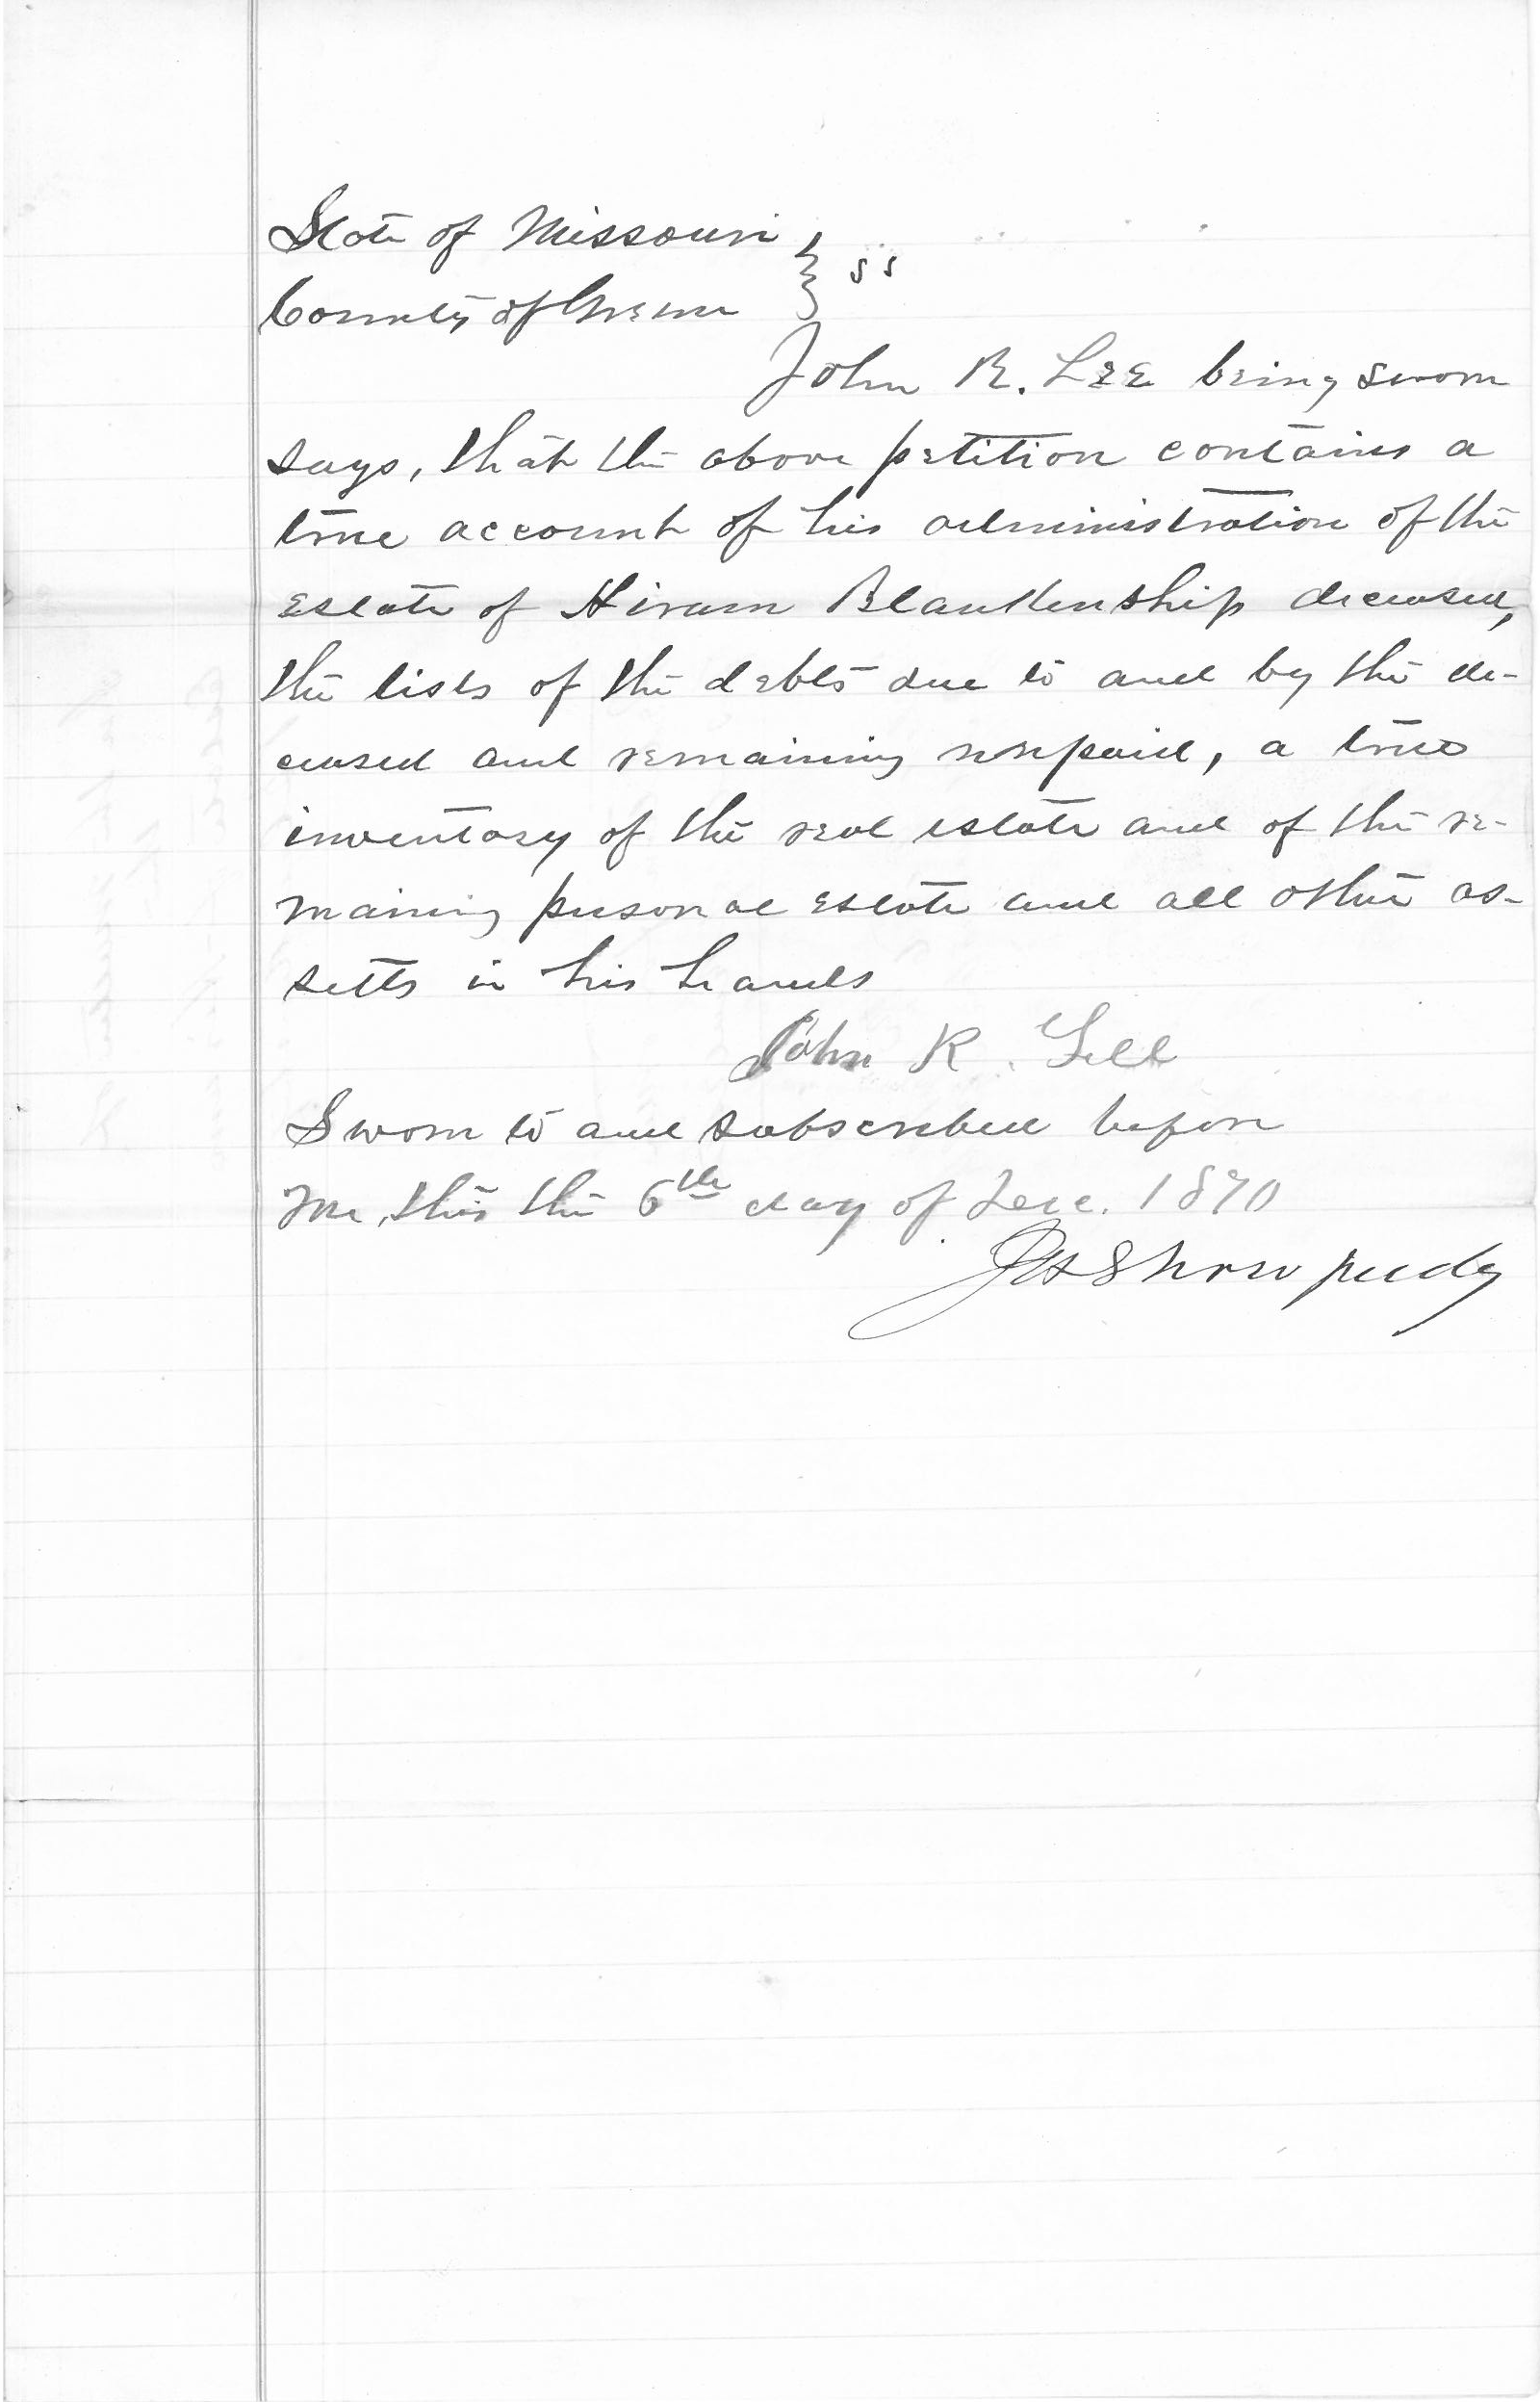 State of Missouri } ss
County of Greene
John R. Lee being sworn
says, that the above petition contains a
true account of his administration of the
estate of Hiram Blankenship deceased,
the lists of the debts due to and by the de-
ceased and remaining unpaid, a true
inventory of the real estate and of the re-
maining personal estate and all other as-
setts in his hands
John R. Lee
Sworn to and subscribed before
me, this the 6th day of Dec. 1870